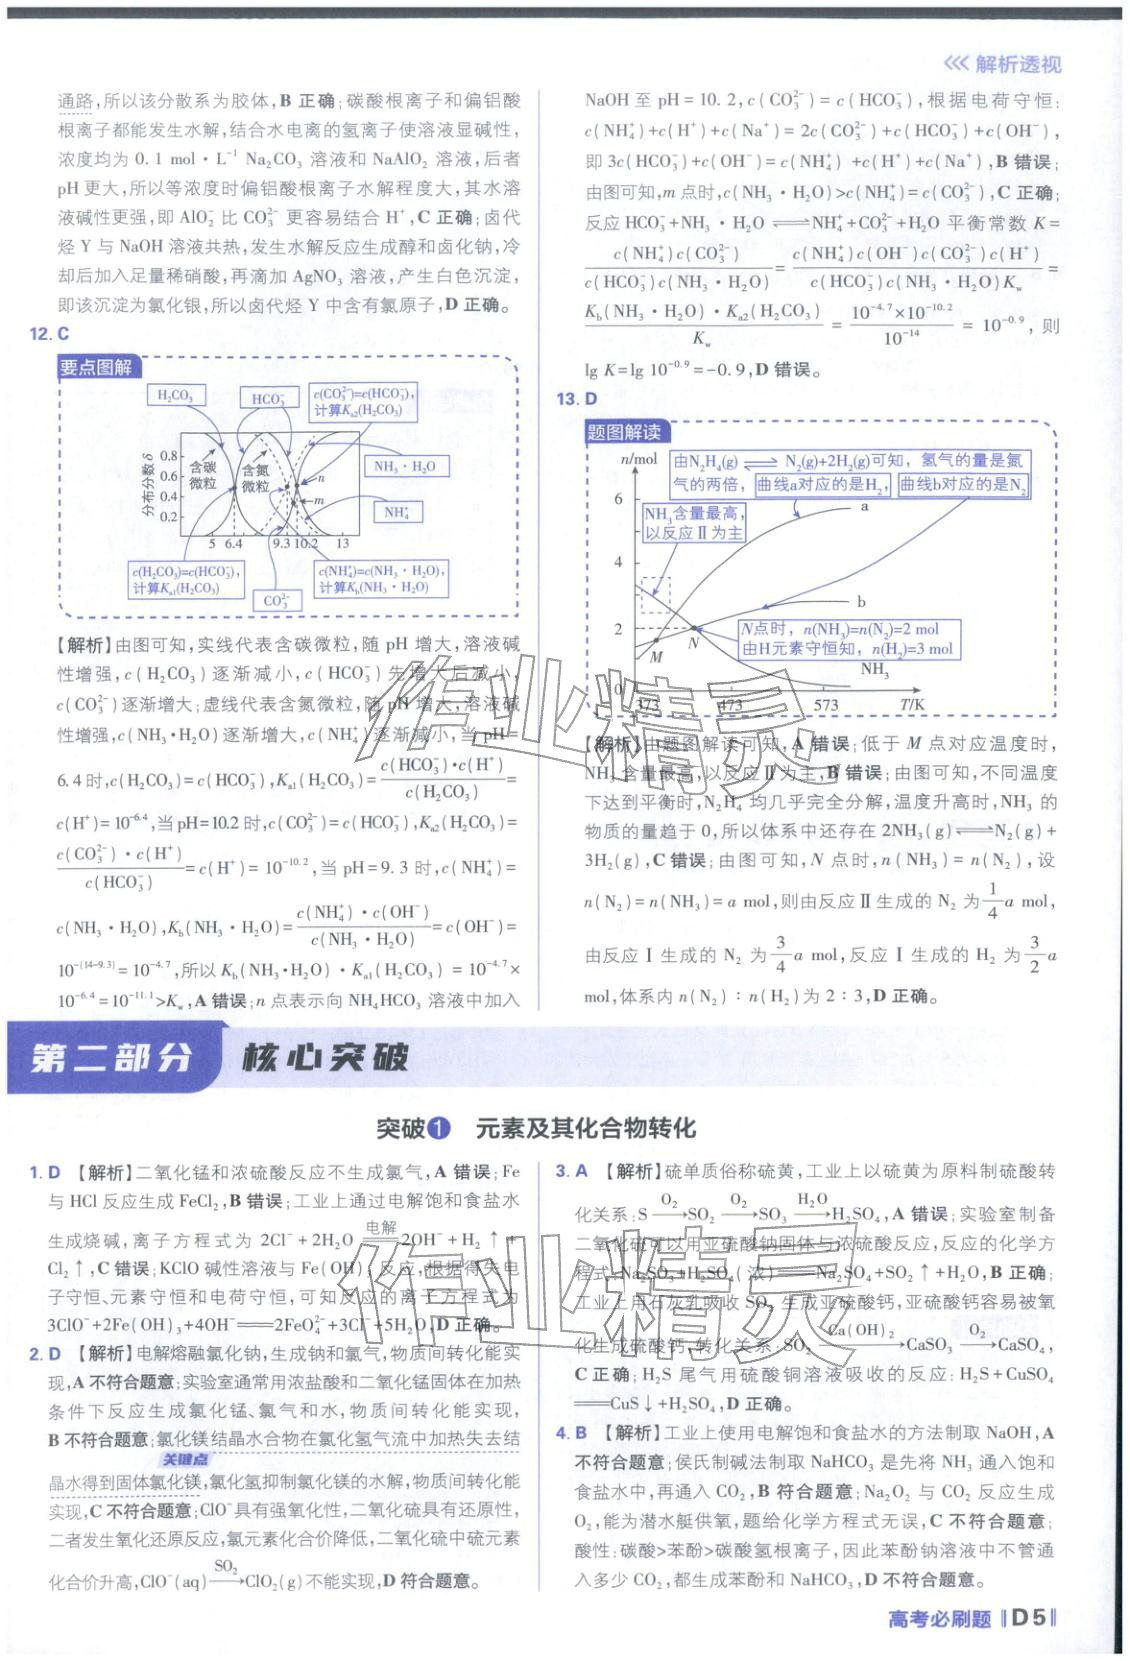 <<< 解析透视
通路,所以该分散系为胶体,B 正确;碳酸根离子和偏铝酸
根离子都能发生水解,结合水电离的氢离子使溶液显碱性,
浓度均为 0.1 mol·L⁻¹ Na₂CO₃ 溶液和 NaAlO₂ 溶液,后者
pH 更大,所以等浓度时偏铝酸根离子水解程度大,其水溶
液碱性更强,即 AlO₂⁻ 比 CO₃²⁻ 更容易结合 H⁺,C 正确;卤代
烃 Y 与 NaOH 溶液共热,发生水解反应生成醇和卤化钠,冷
却后加入足量稀硝酸,再滴加 AgNO₃ 溶液,产生白色沉淀,
即该沉淀为氯化银,所以卤代烃 Y 中含有氯原子,D 正确。
12. C
要点图解
H₂CO₃
HCO₃⁻
c(CO₃²⁻)=c(HCO₃⁻),
计算Kₐ₂(H₂CO₃)
分布分数 δ
0.8
0.6
0.4
0.2
含碳
微粒
含氮
微粒
n
m
NH₃·H₂O
NH₄⁺
5 6.4 9.3 10.2 13
c(H₂CO₃)=c(HCO₃⁻),
计算Kₐ₁(H₂CO₃)
CO₃²⁻
c(NH₄⁺)=c(NH₃·H₂O),
计算K_b(NH₃·H₂O)
【解析】由图可知,实线代表含碳微粒,随 pH 增大,溶液碱
性增强,c(H₂CO₃)逐渐减小,c(HCO₃⁻)先增大后减小,
c(CO₃²⁻)逐渐增大;虚线代表含氮微粒,随 pH 增大,溶液碱
性增强,c(NH₃·H₂O)逐渐增大,c(NH₄⁺)逐渐减小,当 pH=
6.4时,c(H₂CO₃)=c(HCO₃⁻),Kₐ₁(H₂CO₃)=c(HCO₃⁻)·c(H⁺)/c(H₂CO₃)=
c(H⁺)=10⁻⁶·⁴,当pH=10.2时,c(CO₃²⁻)=c(HCO₃⁻),Kₐ₂(H₂CO₃)=
c(CO₃²⁻)·c(H⁺)/c(HCO₃⁻)=c(H⁺)=10⁻¹⁰·²,当 pH=9.3 时,c(NH₄⁺)=
c(NH₃·H₂O),K_b(NH₃·H₂O)=c(NH₄⁺)·c(OH⁻)/c(NH₃·H₂O)=c(OH⁻)=
10⁻⁽¹⁴⁻⁹·³⁾=10⁻⁴·⁷,所以 K_b(NH₃·H₂O)·Kₐ₁(H₂CO₃)=10⁻⁴·⁷×
10⁻⁶·⁴=10⁻¹¹·¹>K_w,A 错误;n 点表示向 NH₄HCO₃ 溶液中加入
NaOH 至 pH=10.2,c(CO₃²⁻)=c(HCO₃⁻),根据电荷守恒:
c(NH₄⁺)+c(H⁺)+c(Na⁺)=2c(CO₃²⁻)+c(HCO₃⁻)+c(OH⁻),
即 3c(HCO₃⁻)+c(OH⁻)=c(NH₄⁺)+c(H⁺)+c(Na⁺),B 错误;
由图可知,m 点时,c(NH₃·H₂O)>c(NH₄⁺)=c(CO₃²⁻),C 正确;
反应 HCO₃⁻+NH₃·H₂O⇌NH₄⁺+CO₃²⁻+H₂O 平衡常数 K=
c(NH₄⁺)c(CO₃²⁻)/c(HCO₃⁻)c(NH₃·H₂O)=c(NH₄⁺)c(OH⁻)c(CO₃²⁻)c(H⁺)/c(HCO₃⁻)c(NH₃·H₂O)K_w=
K_b(NH₃·H₂O)·Kₐ₂(H₂CO₃)/K_w=10⁻⁴·⁷×10⁻¹⁰·²/10⁻¹⁴=10⁻⁰·⁹,则
lg K=lg 10⁻⁰·⁹=-0.9,D 错误。
13. D
题图解读
n/mol
由N₂H₄(g)⇌N₂(g)+2H₂(g)可知,氢气的量是氮
气的两倍,曲线a对应的是H₂,曲线b对应的是N₂
6
4
2
0
NH₃含量最高,
以反应Ⅱ为主
a
b
M
N
N点时,n(NH₃)=n(N₂)=2 mol
由H元素守恒知,n(H₂)=3 mol
NH₃
373 473 573 T/K
【解析】由题图解读可知,A 错误;低于 M 点对应温度时,
NH₃ 含量最高,以反应Ⅱ为主,B 错误;由图可知,不同温度
下达到平衡时,N₂H₄ 均几乎完全分解,温度升高时,NH₃ 的
物质的量趋于 0,所以体系中还存在 2NH₃(g)⇌N₂(g)+
3H₂(g),C 错误;由图可知,N 点时,n(NH₃)=n(N₂),设
n(N₂)=n(NH₃)=a mol,则由反应Ⅱ生成的 N₂ 为 1/4 a mol,
由反应Ⅰ生成的 N₂ 为 3/4 a mol,反应Ⅰ生成的 H₂ 为 3/2 a
mol,体系内 n(N₂):n(H₂)为 2:3,D 正确。
第二部分 核心突破
突破1 元素及其化合物转化
1. D 【解析】二氧化锰和浓硫酸反应不生成氯气,A 错误;Fe
与 HCl 反应生成 FeCl₂,B 错误;工业上通过电解饱和食盐水
生成烧碱,离子方程式为 2Cl⁻+2H₂O=电解=2OH⁻+H₂↑+
Cl₂↑,C 错误;KClO 碱性溶液与 Fe(OH)₃ 反应,根据得失电
子守恒、元素守恒和电荷守恒,可知反应的离子方程式为
3ClO⁻+2Fe(OH)₃+4OH⁻══2FeO₄²⁻+3Cl⁻+5H₂O,D 正确。
2. D 【解析】电解熔融氯化钠,生成钠和氯气,物质间转化能实
现,A 不符合题意;实验室通常用浓盐酸和二氧化锰固体在加热
条件下反应生成氯化锰、氯气和水,物质间转化能实现,
B 不符合题意;氯化镁结晶水合物在氯化氢气流中加热失去结
关键点
晶水得到固体氯化镁,氯化氢抑制氯化镁的水解,物质间转化能
实现,C 不符合题意;ClO⁻具有强氧化性,二氧化硫具有还原性,
二者发生氧化还原反应,氯元素化合价降低,二氧化硫中硫元素
化合价升高,ClO⁻(aq)—SO₂→ClO₂(g)不能实现,D 符合题意。
3. A 【解析】硫单质俗称硫黄,工业上以硫黄为原料制硫酸转
化关系:S—O₂→SO₂—O₂→SO₃—H₂O→H₂SO₄,A 错误;实验室制备
二氧化硫可以用亚硫酸钠固体与浓硫酸反应,反应的化学方
程式:Na₂SO₃+H₂SO₄(浓)══Na₂SO₄+SO₂↑+H₂O,B 正确;
工业上用石灰乳吸收 SO₂ 生成亚硫酸钙,亚硫酸钙容易被氧
化生成硫酸钙,转化关系:SO₂—Ca(OH)₂→CaSO₃—O₂→CaSO₄,
C 正确;H₂S 尾气用硫酸铜溶液吸收的反应:H₂S+CuSO₄
══CuS↓+H₂SO₄,D 正确。
4. B 【解析】工业上使用电解饱和食盐水的方法制取 NaOH,A
不符合题意;侯氏制碱法制取 NaHCO₃ 是先将 NH₃ 通入饱和
食盐水中,再通入 CO₂,B 符合题意;Na₂O₂ 与 CO₂ 反应生成
O₂,能为潜水艇供氧,题给化学方程式无误,C 不符合题意;
酸性:碳酸>苯酚>碳酸氢根离子,因此苯酚钠溶液中不管通
入多少 CO₂,都生成苯酚和 NaHCO₃,D 不符合题意。
高考必刷题 D5
作业精灵
作业精灵